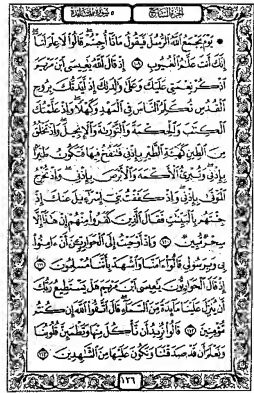 الجزء السابع
٥ سورة المائدة
يَوْمَ يَجْمَعُ اللَّهُ الرُّسُلَ فَيَقُولُ مَاذَا أُجِبْتُمْ قَالُوا لَا عِلْمَ لَنَا
إِنَّكَ أَنتَ عَلَّامُ الْغُيُوبِ ١٠٩ إِذْ قَالَ اللَّهُ يَاعِيسَى ابْنَ مَرْيَمَ
اذْكُرْ نِعْمَتِي عَلَيْكَ وَعَلَى وَالِدَتِكَ إِذْ أَيَّدتُّكَ بِرُوحِ
الْقُدُسِ تُكَلِّمُ النَّاسَ فِي الْمَهْدِ وَكَهْلًا وَإِذْ عَلَّمْتُكَ
الْكِتَابَ وَالْحِكْمَةَ وَالتَّوْرَاةَ وَالْإِنجِيلَ وَإِذْ تَخْلُقُ
مِنَ الطِّينِ كَهَيْئَةِ الطَّيْرِ بِإِذْنِي فَتَنفُخُ فِيهَا فَتَكُونُ طَيْرًا
بِإِذْنِي وَتُبْرِئُ الْأَكْمَهَ وَالْأَبْرَصَ بِإِذْنِي وَإِذْ تُخْرِجُ
الْمَوْتَى بِإِذْنِي وَإِذْ كَفَفْتُ بَنِي إِسْرَائِيلَ عَنكَ إِذْ
جِئْتَهُم بِالْبَيِّنَاتِ فَقَالَ الَّذِينَ كَفَرُوا مِنْهُمْ إِنْ هَذَا إِلَّا
سِحْرٌ مُّبِينٌ ١١٠ وَإِذْ أَوْحَيْتُ إِلَى الْحَوَارِيِّينَ أَنْ آمِنُوا
بِي وَبِرَسُولِي قَالُوا آمَنَّا وَاشْهَدْ بِأَنَّنَا مُسْلِمُونَ ١١١
إِذْ قَالَ الْحَوَارِيُّونَ يَاعِيسَى ابْنَ مَرْيَمَ هَلْ يَسْتَطِيعُ رَبُّكَ
أَن يُنَزِّلَ عَلَيْنَا مَائِدَةً مِّنَ السَّمَاءِ قَالَ اتَّقُوا اللَّهَ إِن كُنتُم
مُّؤْمِنِينَ ١١٢ قَالُوا نُرِيدُ أَن نَّأْكُلَ مِنْهَا وَتَطْمَئِنَّ قُلُوبُنَا
وَنَعْلَمَ أَن قَدْ صَدَقْتَنَا وَنَكُونَ عَلَيْهَا مِنَ الشَّاهِدِينَ ١١٣
١٢٦